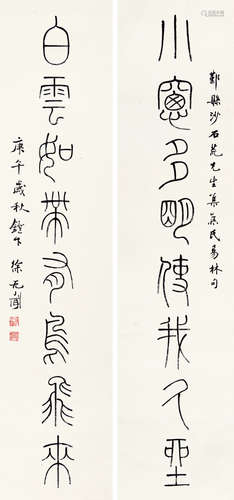 鄞縣沙石荒先生集焦氏易林句
小窗多明使我久坐
白雲如帶有鳥飛來
庚午歲秋鐙作
徐无聞